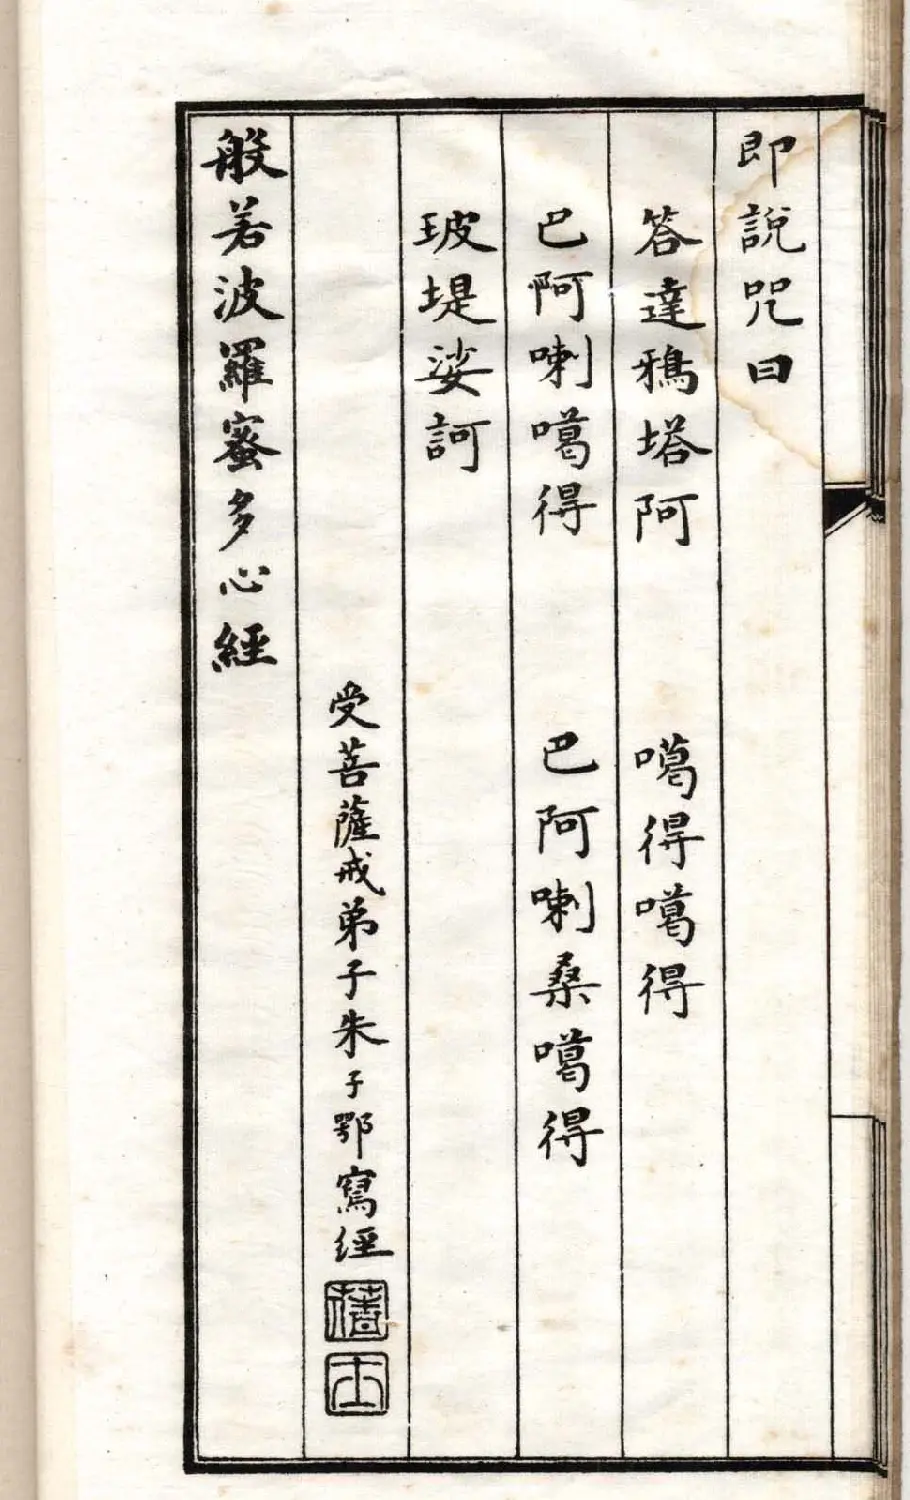 即說咒曰
答達鴉塔阿 噶得噶得
巴阿喇噶得 巴阿喇桑噶得
玻堤娑訶
受菩薩戒弟子朱子鄂寫經
般若波羅蜜多心經